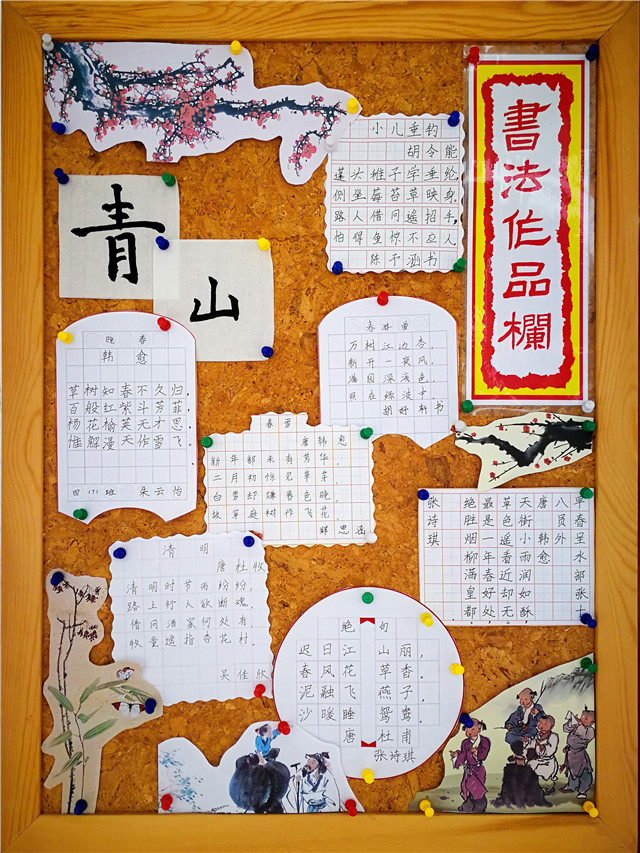 書法作品欄
青
山
小儿垂钓
胡令能
蓬头稚子学垂纶,
侧坐莓苔草映身.
路人借问遥招手,
怕得鱼惊不立人.
陈予涵书
晚春
韩愈
草树知春不久归,
百般红紫斗芳菲,
杨花榆荚无才思
惟解漫天作雪飞.
班 朱云怡
春游曲
万树江边杏,
新开一夜风,
满园深浅色,
照在绿波中.
胡好轩书
春雪
唐韩愈
新年都未有芳华,
二月初惊见草芽,
白雪却嫌春色晚,
故穿庭树作飞花
思涵
早春呈水部张十
八员外
唐韩愈
天街小雨润如酥,
草色遥看近却无,
最是一年春好处,
绝胜烟柳满皇都.
张诗琪
清明
唐杜牧
清明时节雨纷纷,
路上行人欲断魂.
借问酒家何处有,
牧童遥指杏花村.
吴佳欣
绝句
迟日江山丽,
春风花草香.
泥融飞燕子,
沙暖睡鸳鸯.
唐杜甫
张诗琪